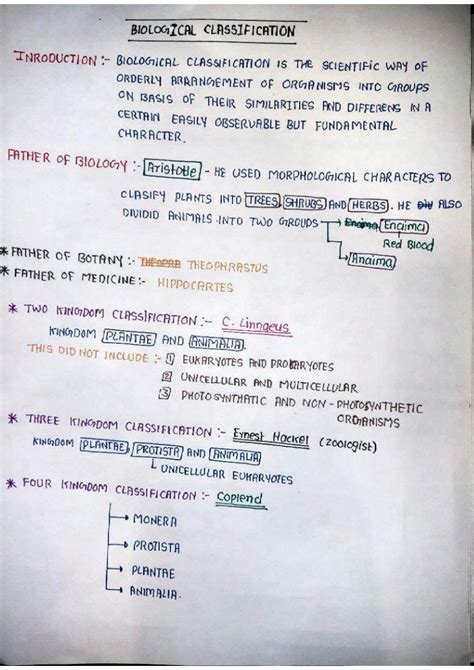 BIOLOGICAL CLASSIFICATION
INRODUCTION :- BIOLOGICAL CLASSIFICATION IS THE SCIENTIFIC WAY OF
ORDERLY ARRANGEMENT OF ORGANISMS INTO GROUPS
ON BASIS OF THEIR SIMILARITIES AND DIFFERENS IN A
CERTAIN EASILY OBSERVABLE BUT FUNDAMENTAL
CHARACTER.
FATHER OF BIOLOGY :- Aristotle - HE USED MORPHOLOGICAL CHARACTERS TO
CLASIFY PLANTS INTO TREES, SHRUBS AND HERBS. HE ALSO
DIVIDID ANIMALS INTO TWO GROUPS → Enaima
Red Blood
→ Anaima
* FATHER OF BOTANY :- THEOPHRASTUS
* FATHER OF MEDICINE :- HIPPOCARTES
* TWO KINGDOM CLASSIFICATION :- C. Linngeus
KINGDOM PLANTAE AND ANIMALIA.
THIS DID NOT INCLUDE :- ① EUKARYOTES AND PROKARYOTES
② UNICELLULAR AND MULTICELLULAR
③ PHOTOSYNTHATIC AND NON - PHOTOSYNTHETIC
ORGANISMS
* THREE KINGDOM CLASSIFICATION :- Ernest Hackel (zoologist)
KINGDOM PLANTAE, PROTISTA AND ANIMALIA
UNICELLULAR EUKARYOTES
* FOUR KINGDOM CLASSIFICATION :- Coplend
→ MONERA
→ PROTISTA
→ PLANTAE
→ ANIMALIA.